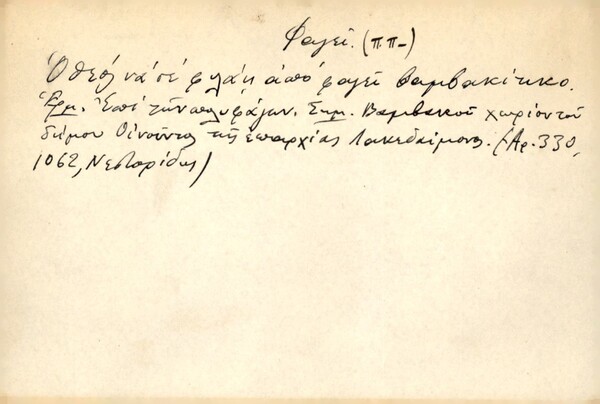 Φαγεῖ. (ππ-)
Ὁ θεὸς νά σέ φυλάῃ ἀπό φαγεῖ βαμβακίτικο.
Ἑρμ. Ἐπί τῶν πολυφάγων. Σημ. Βαμβακοῦ χωρίον τοῦ
δήμου Οἰνοῦντος τῆς ἐπαρχίας Λακεδαίμονος. (Ἀρ. 330,
1062, Νεστορίδης)